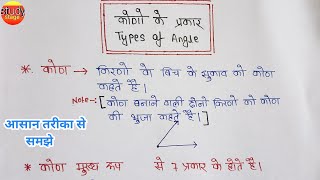 STUDY
कोणों के प्रकार
Types of Angle
*. कोण → किरणों के बिच के झुकाव को कोण
कहते है।
Note:- [ कोण बनाने वाली दोनो किरणों को कोण
की भुजा कहते है। ]
आसान तरीका से
समझे
* कोण मुख्य रूप से 7 प्रकार के होते है।